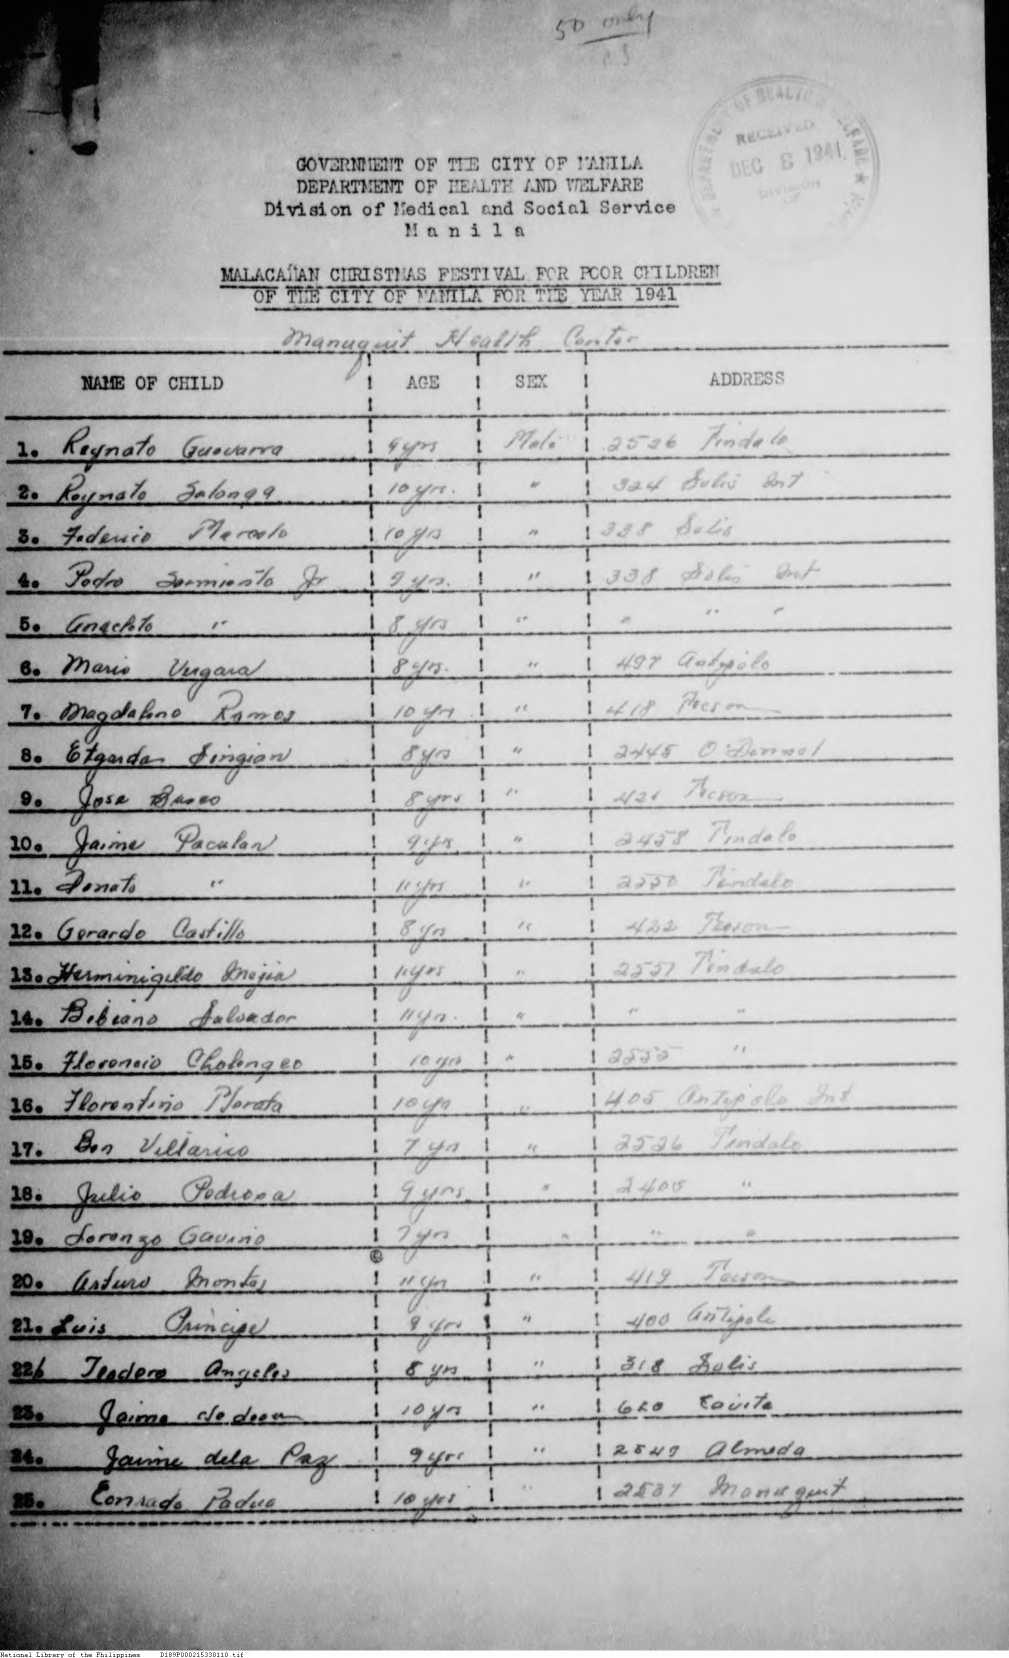 50 only
GOVERNMENT OF THE CITY OF MANILA
DEPARTMENT OF HEALTH AND WELFARE
Division of Medical and Social Service
M a n i l a
DEPARTMENT OF HEALTH & WELFARE
RECEIVED
DEC 8 1941
DIVISION
OF
MALACAÑAN CHRISTMAS FESTIVAL FOR POOR CHILDREN
OF THE CITY OF MANILA FOR THE YEAR 1941
Manuguit Health Center
NAME OF CHILD AGE SEX ADDRESS
1. Reynato Guevarra 9 yrs Male 2526 Tindalo
2. Reynato Salonga 10 yrs. " 324 Solis Int
3. Federico Marcelo 10 yrs " 338 Solis
4. Pedro Sarmiento Jr 9 yrs. " 338 Solis Int
5. Anacleto " 8 yrs " " " "
6. Mario Vergara 8 yrs. " 497 Antipolo
7. Magdaleno Ramos 10 yrs " 418 Tecson
8. Etgardo Singian 8 yrs " 2445 O'Donnel
9. Jose 8 yrs " 421 Tecson
10. Jaime Paculan 9 yrs " 2458 Tindalo
11. Donato " 11 yrs " 2550 Tindalo
12. Gerardo Castillo 8 yrs " 422 Tecson
13. Herminigildo Mejia 11 yrs " 2557 Tindalo
14. Bibiano Salvador 11 yrs. " " "
15. Florencio Cholengco 10 yrs " 2555 "
16. Florentino Plorata 10 yrs " 405 Antipolo Int
17. Ben Villarico 7 yrs " 2526 Tindalo
18. Julio Pedrosa 9 yrs " 2400 "
19. Lorenzo Gavino 7 yrs " " "
20. Arturo Montes 11 yrs " 419 Tecson
21. Luis Principe 9 yrs " 400 Antipolo
22. Teodoro Angeles 8 yrs " 318 Solis
23. Jaime 10 yrs " 620 Cavite
24. Jaime dela Paz 9 yrs " 2549 Almeda
25. Conrado Padua 10 yrs " 2537 Manuguit
National Library of the Philippines D189P000215338110.tif